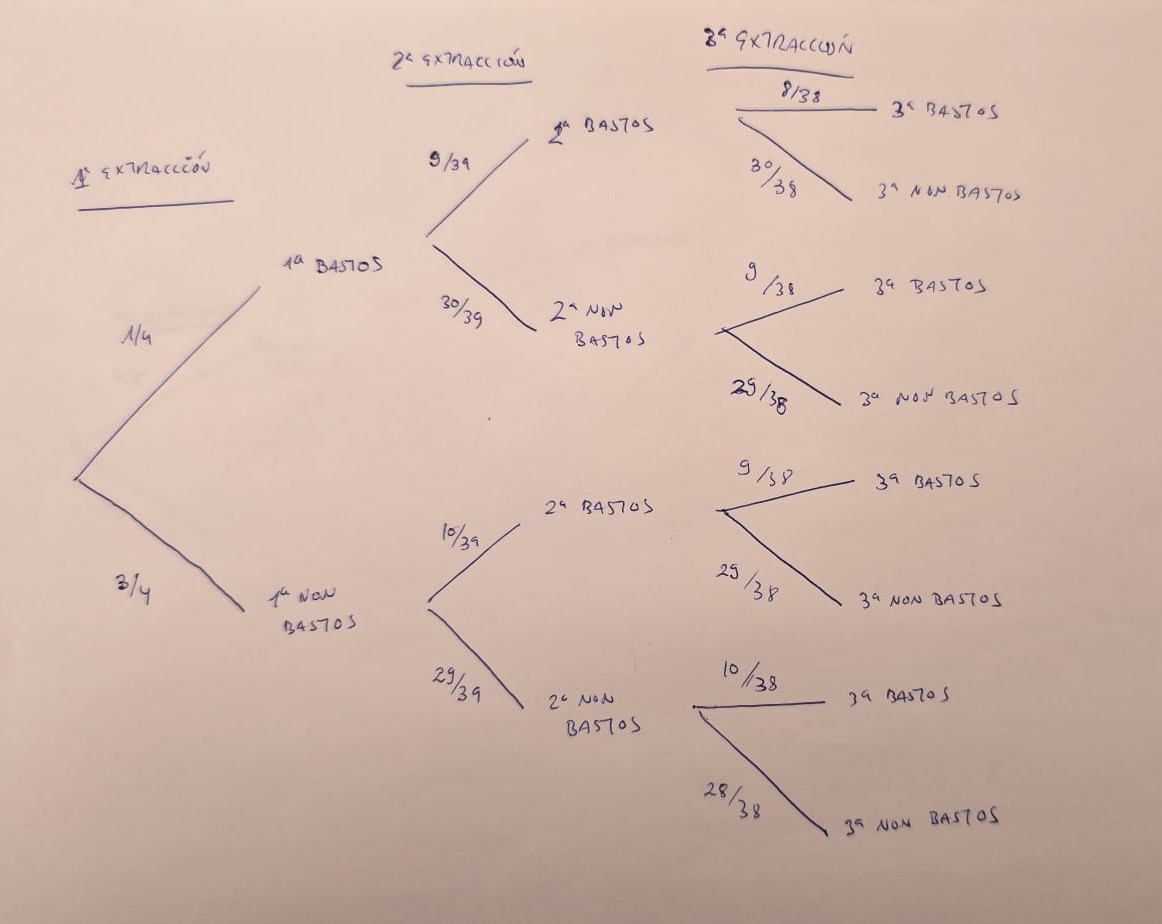 1ª EXTRACCIÓN
2ª EXTRACCIÓN
3ª EXTRACCIÓN
1/4
1ª BASTOS
3/4
1ª NON
BASTOS
9/39
2ª BASTOS
30/39
2ª NON
BASTOS
10/39
2ª BASTOS
29/39
2ª NON
BASTOS
8/38
3ª BASTOS
30/38
3ª NON BASTOS
9/38
3ª BASTOS
29/38
3ª NON BASTOS
9/38
3ª BASTOS
29/38
3ª NON BASTOS
10/38
3ª BASTOS
28/38
3ª NON BASTOS